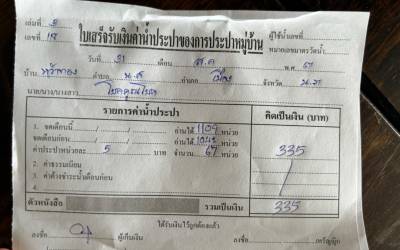 เล่มที่ 2
ใบเสร็จรับเงินค่าน้ำประปาของการประปาหมู่บ้าน
ผู้ใช้น้ำเลขที่
เลขที่ 18
หมายเลขมาตรวัดน้ำ
วันที่ 31 เดือน ส.ค พ.ศ 67
บ้าน ตำบล อำเภอ เมือง จังหวัด
นาย/นาง/นางสาว
รายการค่าน้ำประปา คิดเป็นเงิน (บาท)
1. จดเดือนนี้ อ่านได้ 1109 หน่วย
จดเดือนก่อน อ่านได้ 1042 หน่วย
ค่าประปาหน่วยละ 5 บาท จำนวน 67 หน่วย 335
2. ค่าธรรมเนียม
3. ค่าค้างชำระน้ำเดือนก่อน
4.
ตัวหนังสือ รวมเป็นเงิน 335
ได้รับเงินไว้ถูกต้องแล้ว
ลงชื่อ ผู้เก็บเงิน ลงชื่อ เหรัญญิก